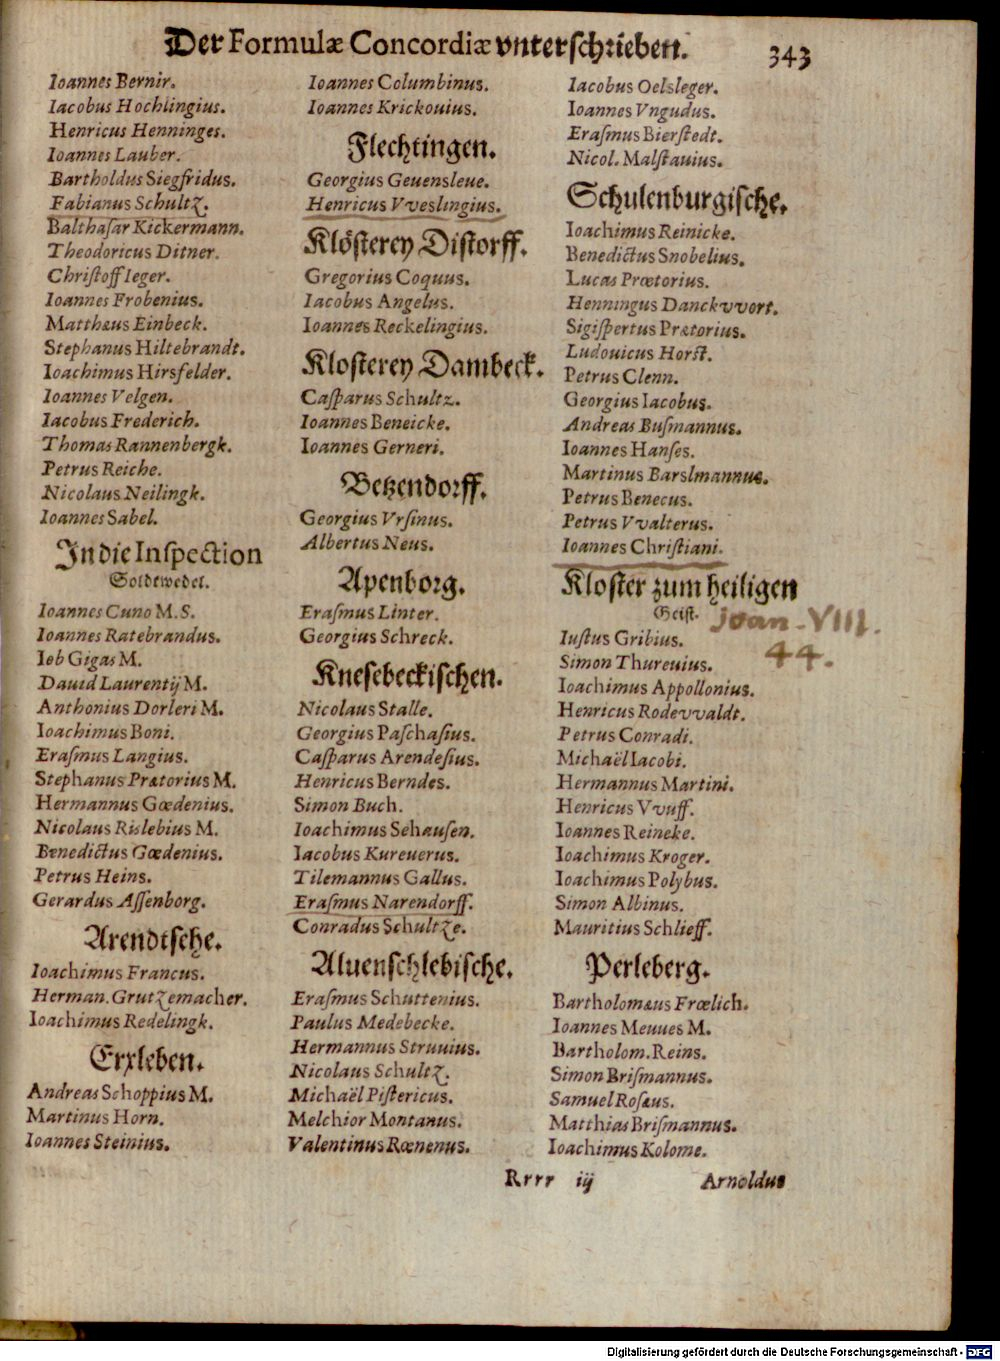 Der Formulæ Concordiæ vnterschrieben. 343
Ioannes Bernir.
Iacobus Hochlingius.
Henricus Henninges.
Ioannes Lauber.
Bartholdus Siegfridus.
Fabianus Schultz.
Balthaſar Kickermann.
Theodoricus Ditner.
Chriſtoff Ieger.
Ioannes Frobenius.
Matthæus Einbeck.
Stephanus Hiltebrandt.
Ioachimus Hirsfelder.
Ioannes Velgen.
Iacobus Frederich.
Thomas Rannenbergk.
Petrus Reiche.
Nicolaus Neilingk.
Ioannes Sabel.
In die Inſpection
Soldtwedel.
Ioannes Cuno M. S.
Ioannes Ratebrandus.
Iob Gigas M.
Dauid Laurentij M.
Anthonius Dorleri M.
Ioachimus Boni.
Eraſmus Langius.
Stephanus Prætorius M.
Hermannus Gœdenius.
Nicolaus Rislebius M.
Benedictus Gœdenius.
Petrus Heins.
Gerardus Aſſenborg.
Arendtſche.
Ioachimus Francus.
Herman. Grutzemacher.
Ioachimus Redelingk.
Erxleben.
Andreas Schoppius M.
Martinus Horn.
Ioannes Steinius.
Ioannes Columbinus.
Ioannes Krickouius.
Flechtingen.
Georgius Geuensleue.
Henricus Vveslingius.
Klöſterey Diſtorff.
Gregorius Coquus.
Iacobus Angelus.
Ioannes Reckelingius.
Kloſterey Dambeck.
Caſparus Schultz.
Ioannes Beneicke.
Ioannes Gerneri.
Betzendorff.
Georgius Vrſinus.
Albertus Neus.
Apenborg.
Eraſmus Linter.
Georgius Schreck.
Kneſebeckiſchen.
Nicolaus Stalle.
Georgius Paſchaſius.
Caſparus Arendeſius.
Henricus Berndes.
Simon Buch.
Ioachimus Sehauſen.
Iacobus Kureuerus.
Tilemannus Gallus.
Eraſmus Narendorff.
Conradus Schultze.
Aluenſchlebiſche.
Eraſmus Schuttenius.
Paulus Medebecke.
Hermannus Struuius.
Nicolaus Schultz.
Michaël Piſtericus.
Melchior Montanus.
Valentinus Rœnenus.
Iacobus Oelsleger.
Ioannes Vngudus.
Eraſmus Bierſtedt.
Nicol. Malſtauius.
Schulenburgiſche.
Ioachimus Reinicke.
Benedictus Snobelius.
Lucas Prætorius.
Henningus Danckvvort.
Sigiſpertus Prætorius.
Ludouicus Horſt.
Petrus Clenn.
Georgius Iacobus.
Andreas Buſmannus.
Ioannes Hanſes.
Martinus Barslmannus.
Petrus Benecus.
Petrus Vvalterus.
Ioannes Chriſtiani.
Kloſter zum heiligen
Geiſt. Joan. VIII.
44.
Iuſtus Gribius.
Simon Thureuius.
Ioachimus Appollonius.
Henricus Rodevvaldt.
Petrus Conradi.
Michaël Iacobi.
Hermannus Martini.
Henricus Vvuff.
Ioannes Reineke.
Ioachimus Kroger.
Ioachimus Polybus.
Simon Albinus.
Mauritius Schlieff.
Perleberg.
Bartholomæus Frœlich.
Ioannes Meuues M.
Bartholom. Reins.
Simon Briſmannus.
Samuel Roſæus.
Matthias Briſmannus.
Ioachimus Kolome.
Rrrr iij Arnoldus
Digitalisierung gefördert durch die Deutsche Forschungsgemeinschaft - DFG